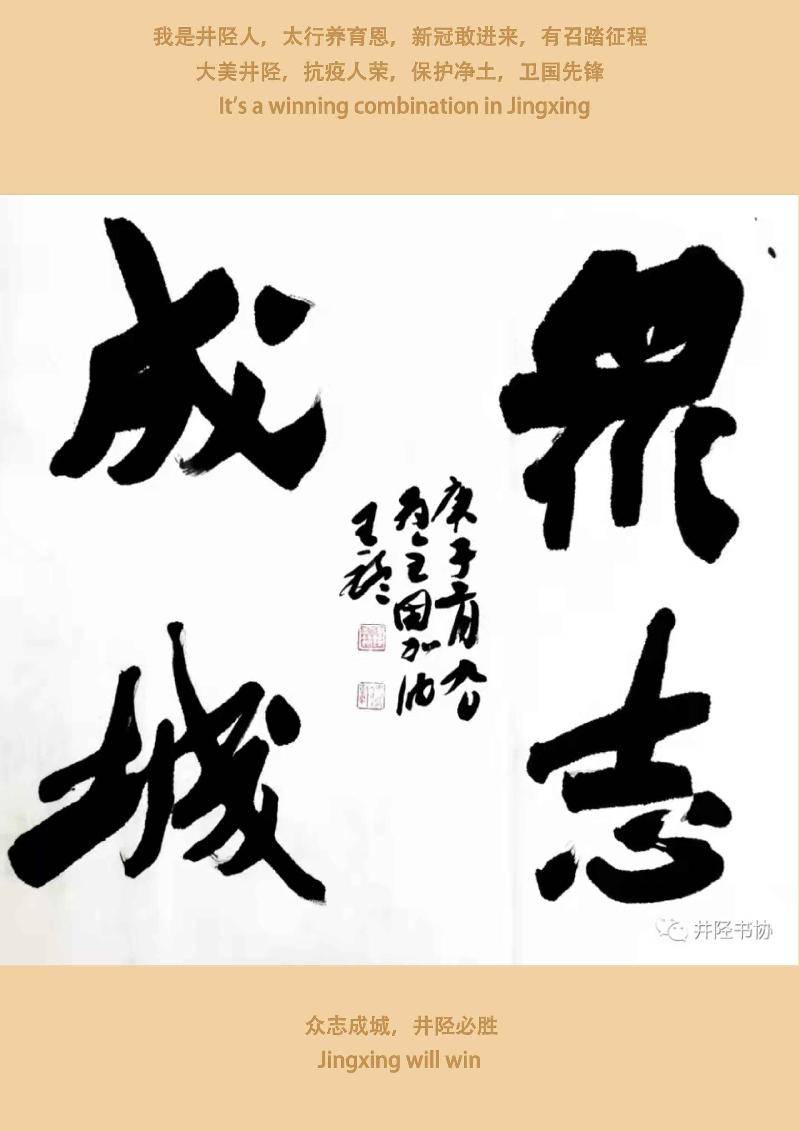 我是井陉人，太行养育恩，新冠敢进来，有召踏征程
大美井陉，抗疫人荣，保护净土，卫国先锋
It's a winning combination in Jingxing
眾志
成城
庚子育台
为全国加油
井陉书协
众志成城，井陉必胜
Jingxing will win